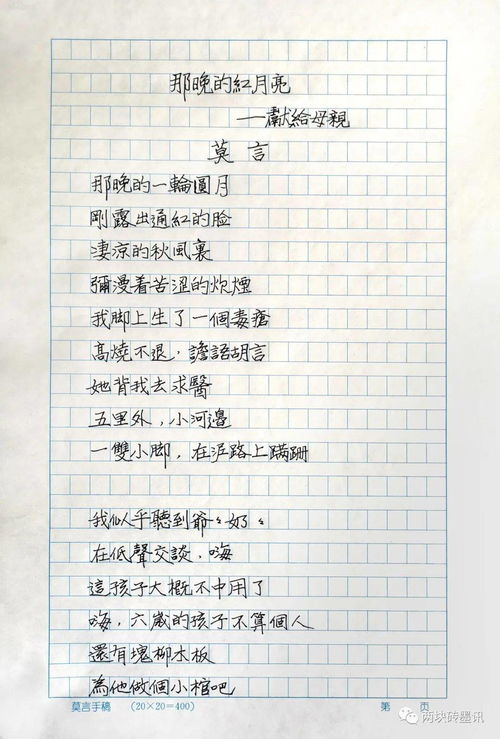 那晚的紅月亮
——獻給母親
莫言
那晚的一輪圓月
剛露出通紅的脸
淒凉的秋風裏
彌漫着苦涩的炊煙
我脚上生了一個毒瘡
高燒不退，譫語胡言
她背我去求醫
五里外，小河邊
一雙小脚，在泥路上蹒跚
我似乎聽到爺々奶々
在低聲交談，嗨
這孩子大概不中用了
嗨，六歲的孩子不算個人
還有塊柳木板
為他做個小棺吧
莫言手稿 （20×20=400） 第 页
两块砖墨讯